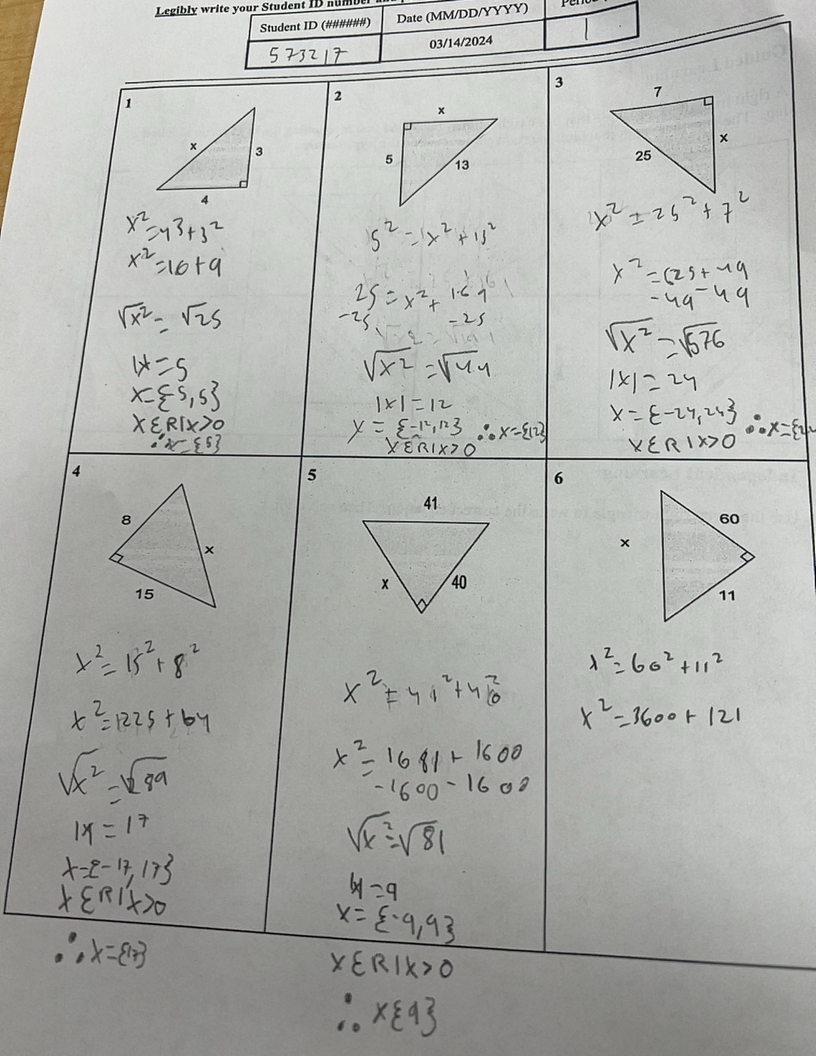 Legibly write your Student ID number
Student ID (######)
Date (MM/DD/YYYY)
573217
03/14/2024
1
1
x
3
4
x²=4³+3²
x²=16+9
√x²=√25
|x|=5
x={-5,5}
xεR|x>0
∴x={5}
2
x
5
13
5²=x²+13²
25=x²+169
-25 -25
√x²=√144
|x|=12
x={-12,12} ∴x={12}
xεR|x>0
3
7
x
25
x²=25²+7²
x²=625+49
-49-49
√x²=√576
|x|=24
x={-24,24}
xεR|x>0
4
8
x
15
x²=15²+8²
x²=225+64
√x²=√289
|x|=17
x={-17,17}
xεR|x>0
∴x={17}
5
41
x
40
x²=41²+40²
x²=1681+1600
-1600-1600
√x²=√81
|x|=9
x={-9,9}
xεR|x>0
∴x{9}
6
60
x
11
x²=60²+11²
x²=3600+121